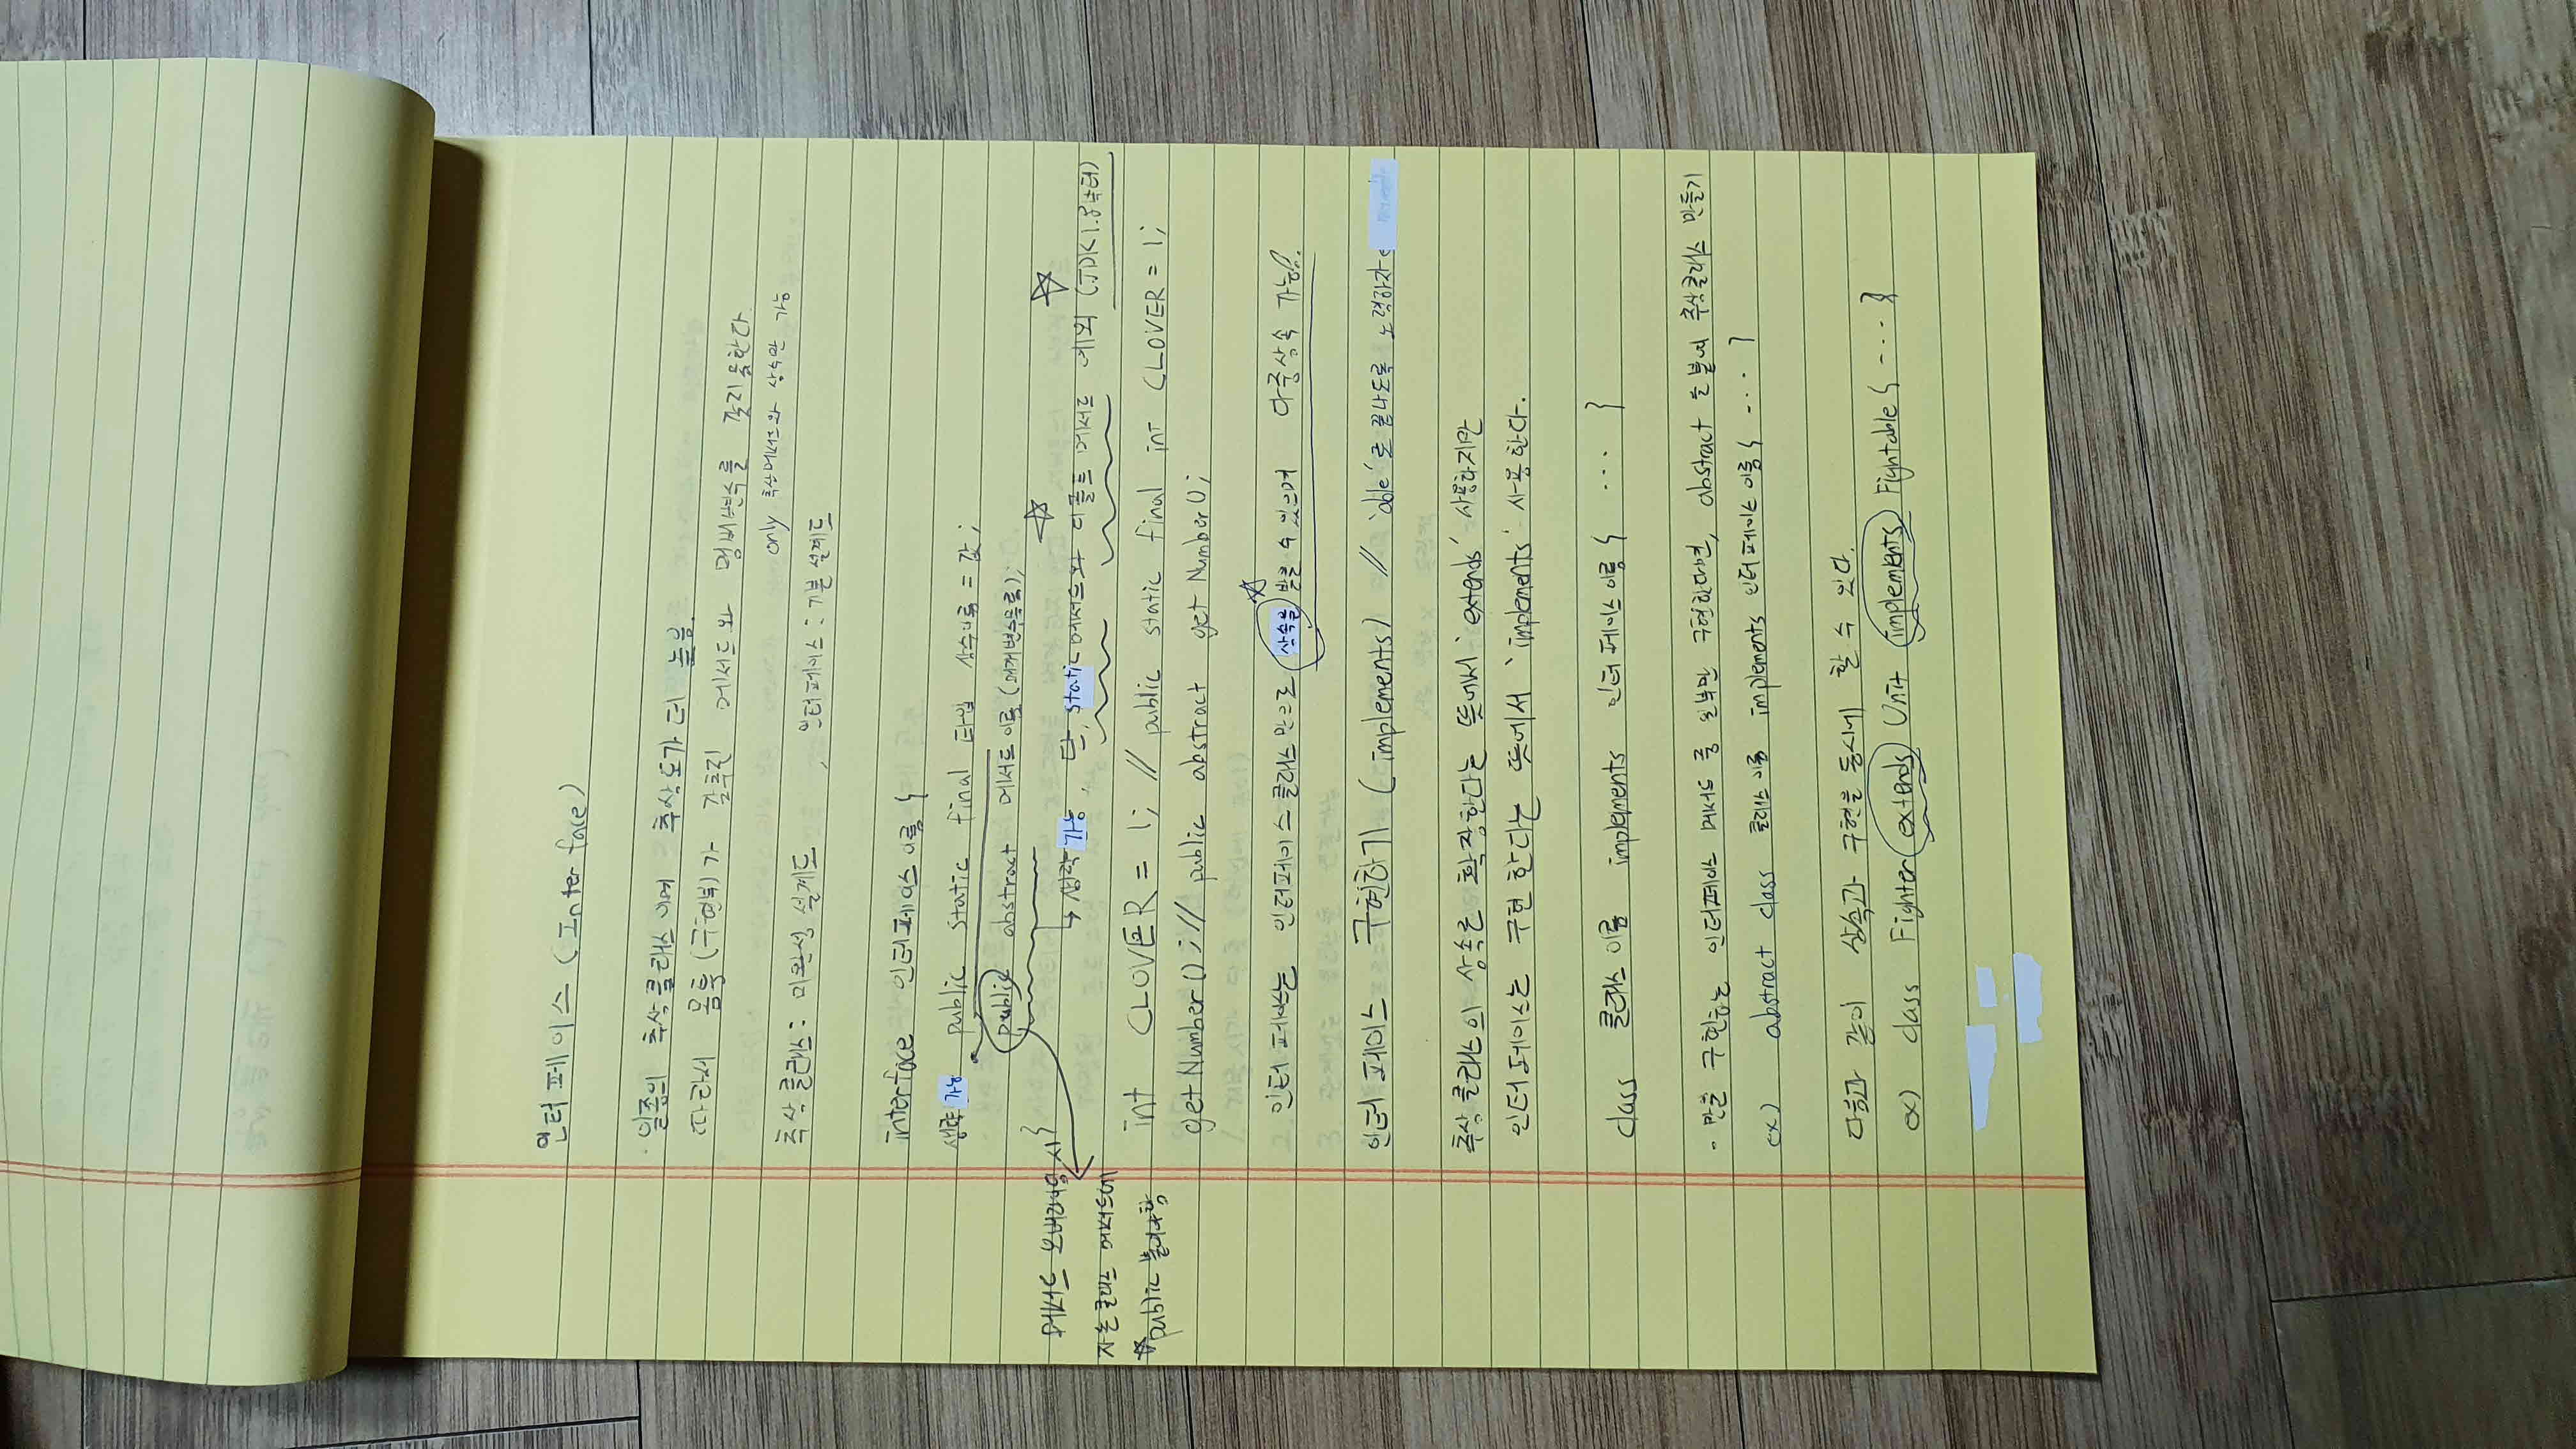 인터페이스 (Interface)
· 일종의 추상클래스이며 추상도가 더 높음.
따라서 몸통(구현부)가 갖추진 메서드와 멤버변수를 갖지못한다.
only 추상메서드와 상수만 가능
추상클래스 : 미완성 설계도 , 인터페이스 : 기본 설계도
interface 인터페이스 이름 {
생략 가능 public static final 타입 상수이름 = 값;
public abstract 메서드 이름 (매개변수목록);
}
메서드 오버라이딩 시
→ 생략 가능, 단, static메서드와 디폴트 메서드 예외 (JDK1.8부터)
자손클래스 메서드에
☆public 붙여야함
int CLOVER = 1; // public static final int CLOVER = 1;
getNumber(); // public abstract getNumber();
인터페이스는 인터페이스 클래스만으로 상속을 받을 수 있으며 다중상속 가능!
인터페이스 구현하기 (implements) // 'able'로 끝나도록 노력하자
추상클래스의 상속은 확장한다는 뜻에서 'extends' 사용하지만
인터페이스는 구현한다는 뜻에서 'implements' 사용한다.
class 클래스이름 implements 인터페이스이름 { ... }
· 만을 구현하는 인터페이스 메서드 중 일부만 구현한다면, abstract 를 붙여 추상클래스 만들기
ex) abstract class 클래스이름 implements 인터페이스 이름 { ... }
다음과 같이 상속과 구현을 동시에 할 수 있다.
ex) class Fighter extends Unit implements Fightable { ... }